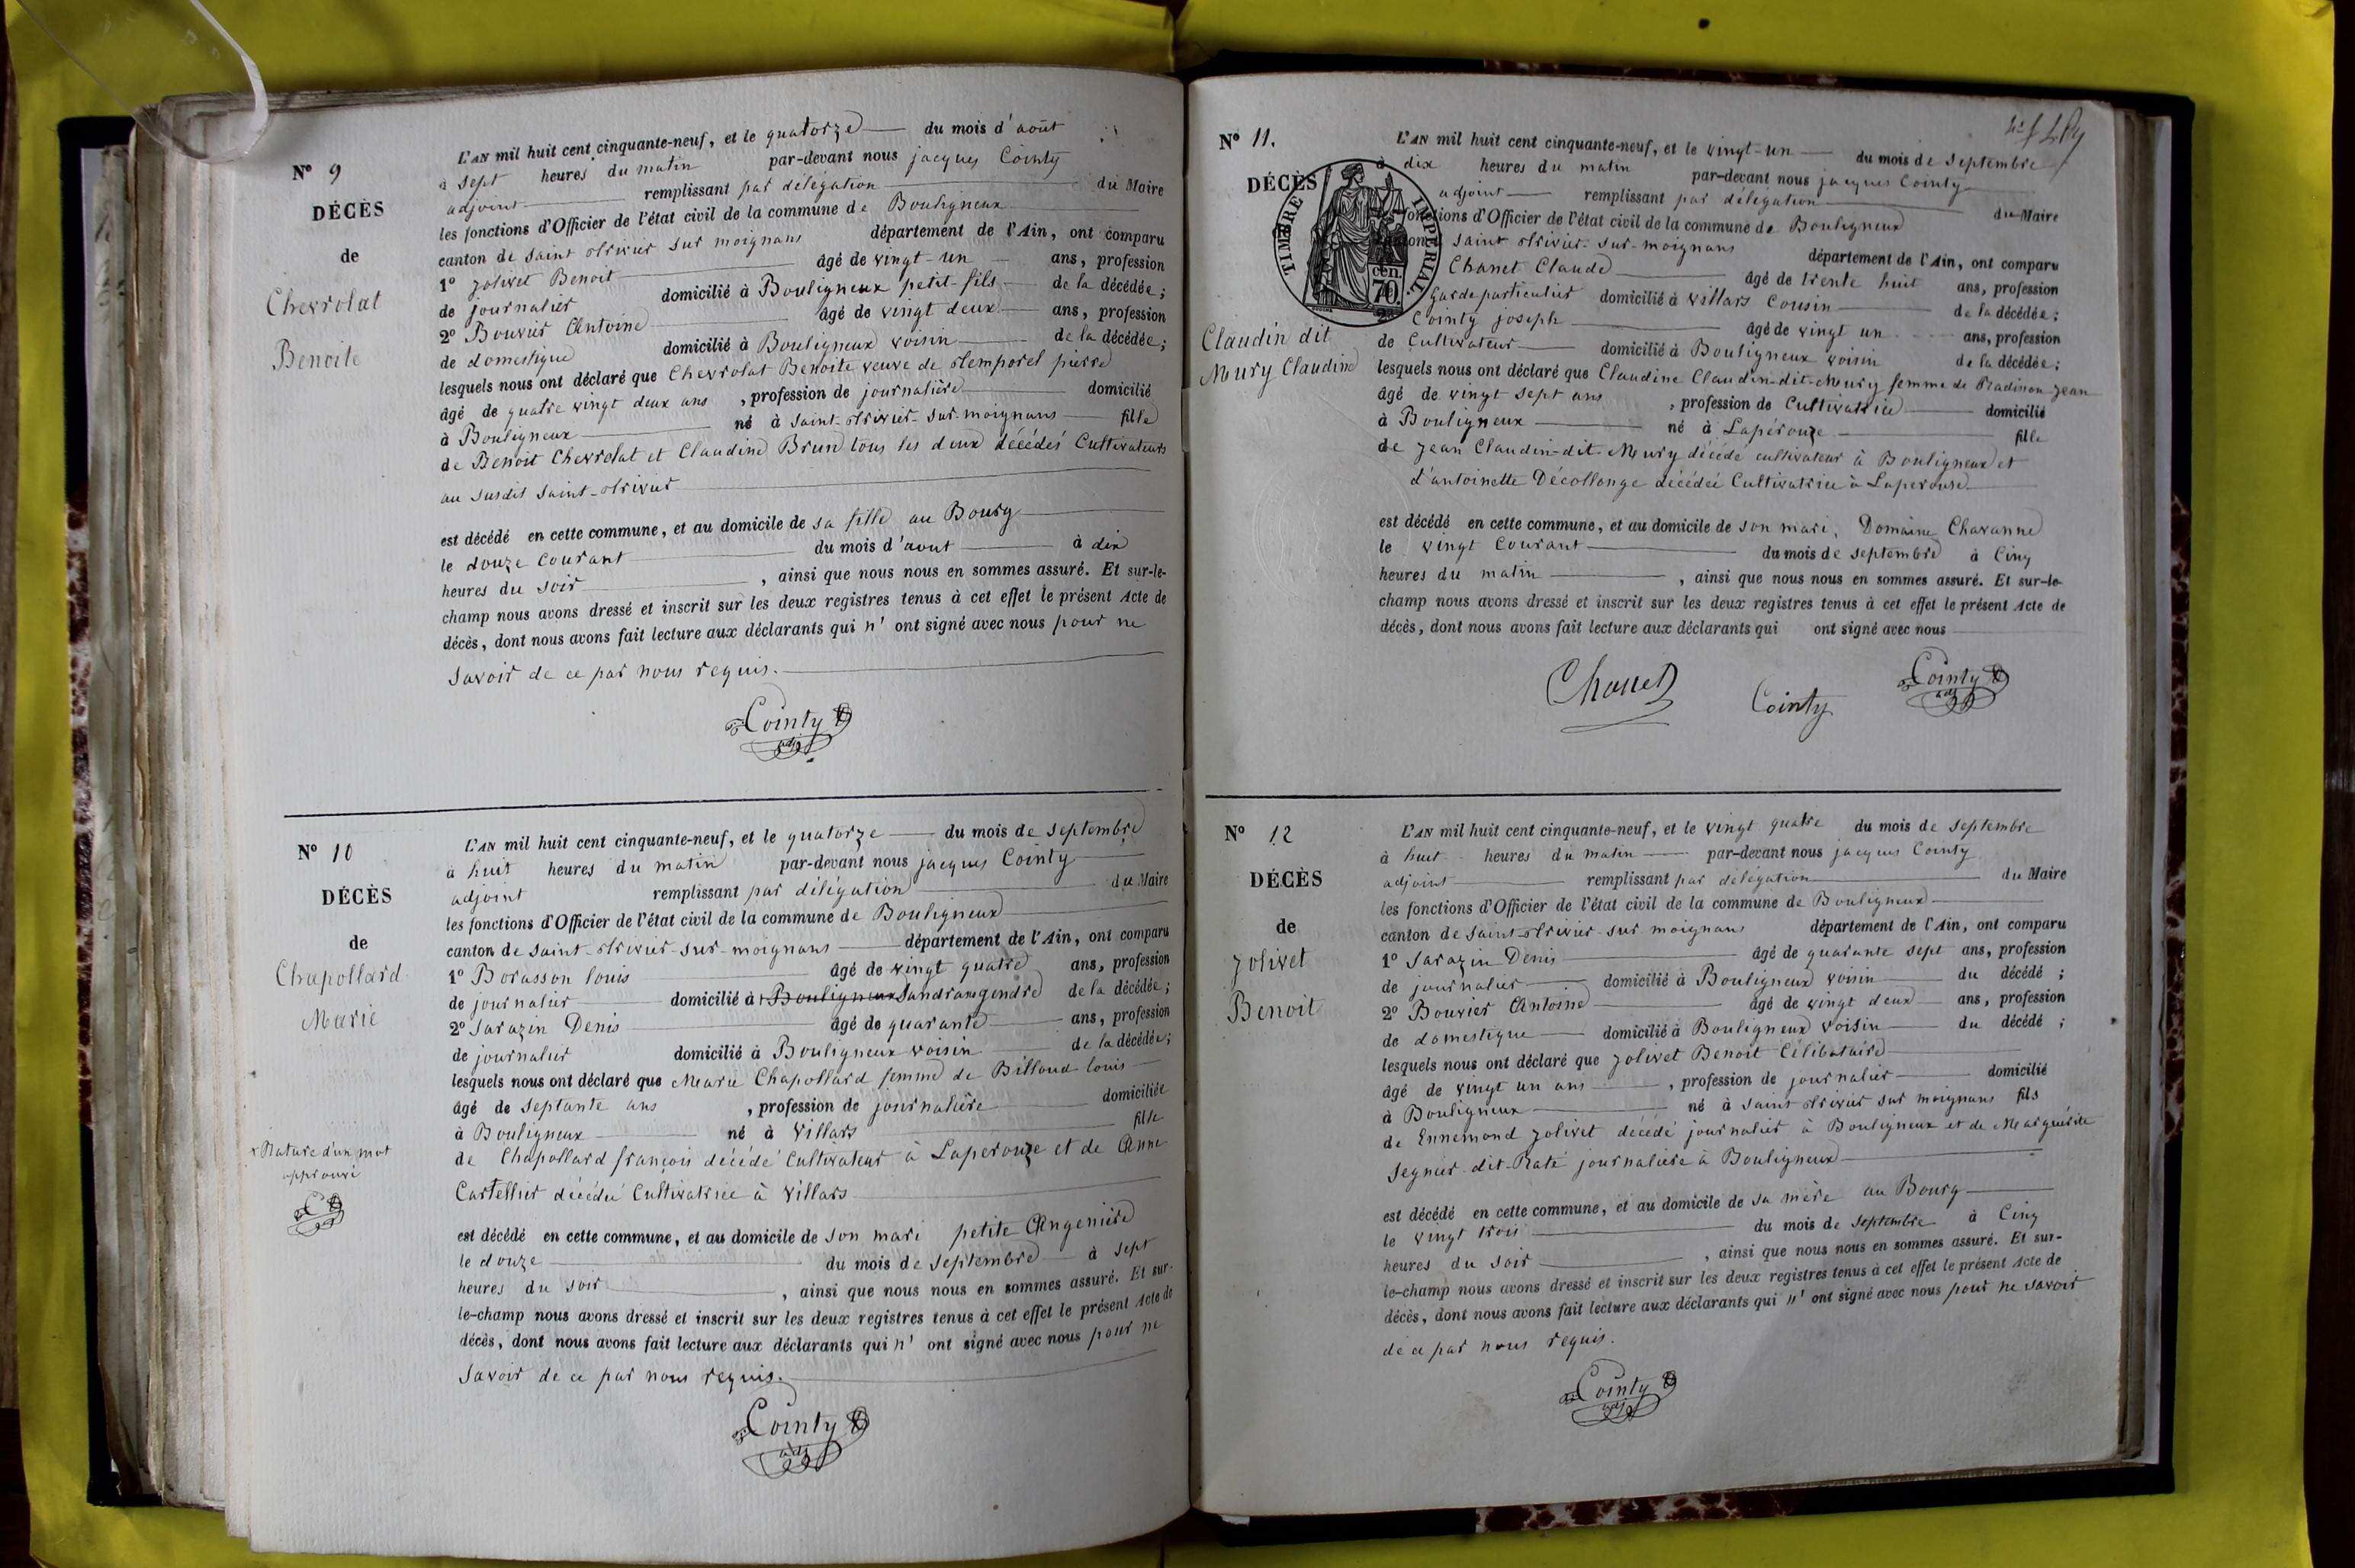 N° 9
DÉCÈS
de
Chevrolat
Benoite
L'AN mil huit cent cinquante-neuf, et le quatorze du mois d'août
à sept heures du matin par-devant nous jacques Cointy
adjoint remplissant par délégation du Maire
les fonctions d'Officier de l'état civil de la commune de Bouligneux
canton de Saint trivier sur moignans département de l'Ain, ont comparu
1° jolivet Benoit âgé de vingt-un ans, profession
de journalier domicilié à Bouligneux petit-fils de la décédée;
2° Bouvier Antoine âgé de vingt deux ans, profession
de domestique domicilié à Bouligneux voisin de la décédée;
lesquels nous ont déclaré que Chevrolat Benoite veuve de Temporel pierre
âgé de quatre vingt deux ans, profession de journalière domicilié
à Bouligneux né à Saint-trivier-sur-moignans fille
de Benoit Chevrolat et Claudine Brun tous les deux décédés Cultivateurs
au susdit Saint-trivier
est décédé en cette commune, et au domicile de sa fille au Bourg
le douze Courant du mois d'aout à dix
heures du soir, ainsi que nous nous en sommes assuré. Et sur-le-
champ nous avons dressé et inscrit sur les deux registres tenus à cet effet le présent Acte de
décès, dont nous avons fait lecture aux déclarants qui n'ont signé avec nous pour ne
savoir de ce par nous requis.
Cointy
adj
N° 10
DÉCÈS
de
Chapollard
Marie
L'AN mil huit cent cinquante-neuf, et le quatorze du mois de septembre
à huit heures du matin par-devant nous jacques Cointy
adjoint remplissant par délégation du Maire
les fonctions d'Officier de l'état civil de la commune de Bouligneux
canton de Saint-trivier-sur-moignans département de l'Ain, ont comparu
1° Borasson louis âgé de vingt quatre ans, profession
de journalier domicilié à Bouligneux Sandrans gendre de la décédée;
2° Sarazin Denis âgé de quarante ans, profession
de journalier domicilié à Bouligneux voisin de la décédée;
lesquels nous ont déclaré que Marie Chapollard femme de Billoud louis
âgé de septante ans, profession de journalière domiciliée
à Bouligneux né à Villars fille
de Chapollard françois décédé Cultivateur à Laperouze et de Anne
Cartellier décédée Cultivatrice à Villars
est décédé en cette commune, et au domicile de son mari petite Angenière
le douze du mois de septembre à sept
heures du soir, ainsi que nous nous en sommes assuré. Et sur-
le-champ nous avons dressé et inscrit sur les deux registres tenus à cet effet le présent Acte de
décès, dont nous avons fait lecture aux déclarants qui n'ont signé avec nous pour ne
savoir de ce par nous requis.
x Rature d'un mot
approuvé
Cointy
adj
N° 11.
DÉCÈS
TIMBRE IMPÉRIAL
cen.
70.
Claudin dit
Meury Claudine
L'AN mil huit cent cinquante-neuf, et le vingt-un du mois de septembre
à dix heures du matin par-devant nous jacques Cointy
adjoint remplissant par délégation du Maire
fonctions d'Officier de l'état civil de la commune de Bouligneux
Saint trivier-sur-moignans département de l'Ain, ont comparu
Chanet Claude âgé de trente huit ans, profession
garde particulier domicilié à Villars Cousin de la décédée;
2° Cointy joseph âgé de vingt un ans, profession
de Cultivateur domicilié à Bouligneux voisin de la décédée;
lesquels nous ont déclaré que Claudine Claudin-dit-Meury femme de Pradinon jean
âgé de vingt sept ans, profession de Cultivatrice domicilié
à Bouligneux né à Lapérouze fille
de jean Claudin-dit-Meury décédé cultivateur à Bouligneux et
d'antoinette Décollonge décédée Cultivatrice à Laperouse
est décédé en cette commune, et au domicile de son mari, Domaine Chavanne
le vingt Courant du mois de septembre à Cinq
heures du matin, ainsi que nous nous en sommes assuré. Et sur-le-
champ nous avons dressé et inscrit sur les deux registres tenus à cet effet le présent Acte de
décès, dont nous avons fait lecture aux déclarants qui ont signé avec nous
Chanet
Cointy
Cointy
adj
N° 12
DÉCÈS
de
jolivet
Benoit
L'AN mil huit cent cinquante-neuf, et le vingt quatre du mois de septembre
à huit heures du matin par-devant nous jacques Cointy
adjoint remplissant par délégation du Maire
les fonctions d'Officier de l'état civil de la commune de Bouligneux
canton de Saint-trivier-sur moignans département de l'Ain, ont comparu
1° Sarazin Denis âgé de quarante sept ans, profession
de journalier domicilié à Bouligneux voisin du décédé;
2° Bouvier Antoine âgé de vingt deux ans, profession
de domestique domicilié à Bouligneux voisin du décédé;
lesquels nous ont déclaré que jolivet Benoit Célibataire
âgé de vingt un ans, profession de journalier domicilié
à Bouligneux né à Saint trivier sur moignans fils
de Ennemond jolivet décédé journalier à Bouligneux et de Marguerite
Segnier-dit-Raté journalière à Bouligneux
est décédé en cette commune, et au domicile de sa mère au Bourg
le vingt trois du mois de septembre à Cinq
heures du soir, ainsi que nous nous en sommes assuré. Et sur-
le-champ nous avons dressé et inscrit sur les deux registres tenus à cet effet le présent Acte de
décès, dont nous avons fait lecture aux déclarants qui n'ont signé avec nous pour ne savoir
de ce par nous requis.
Cointy
adj